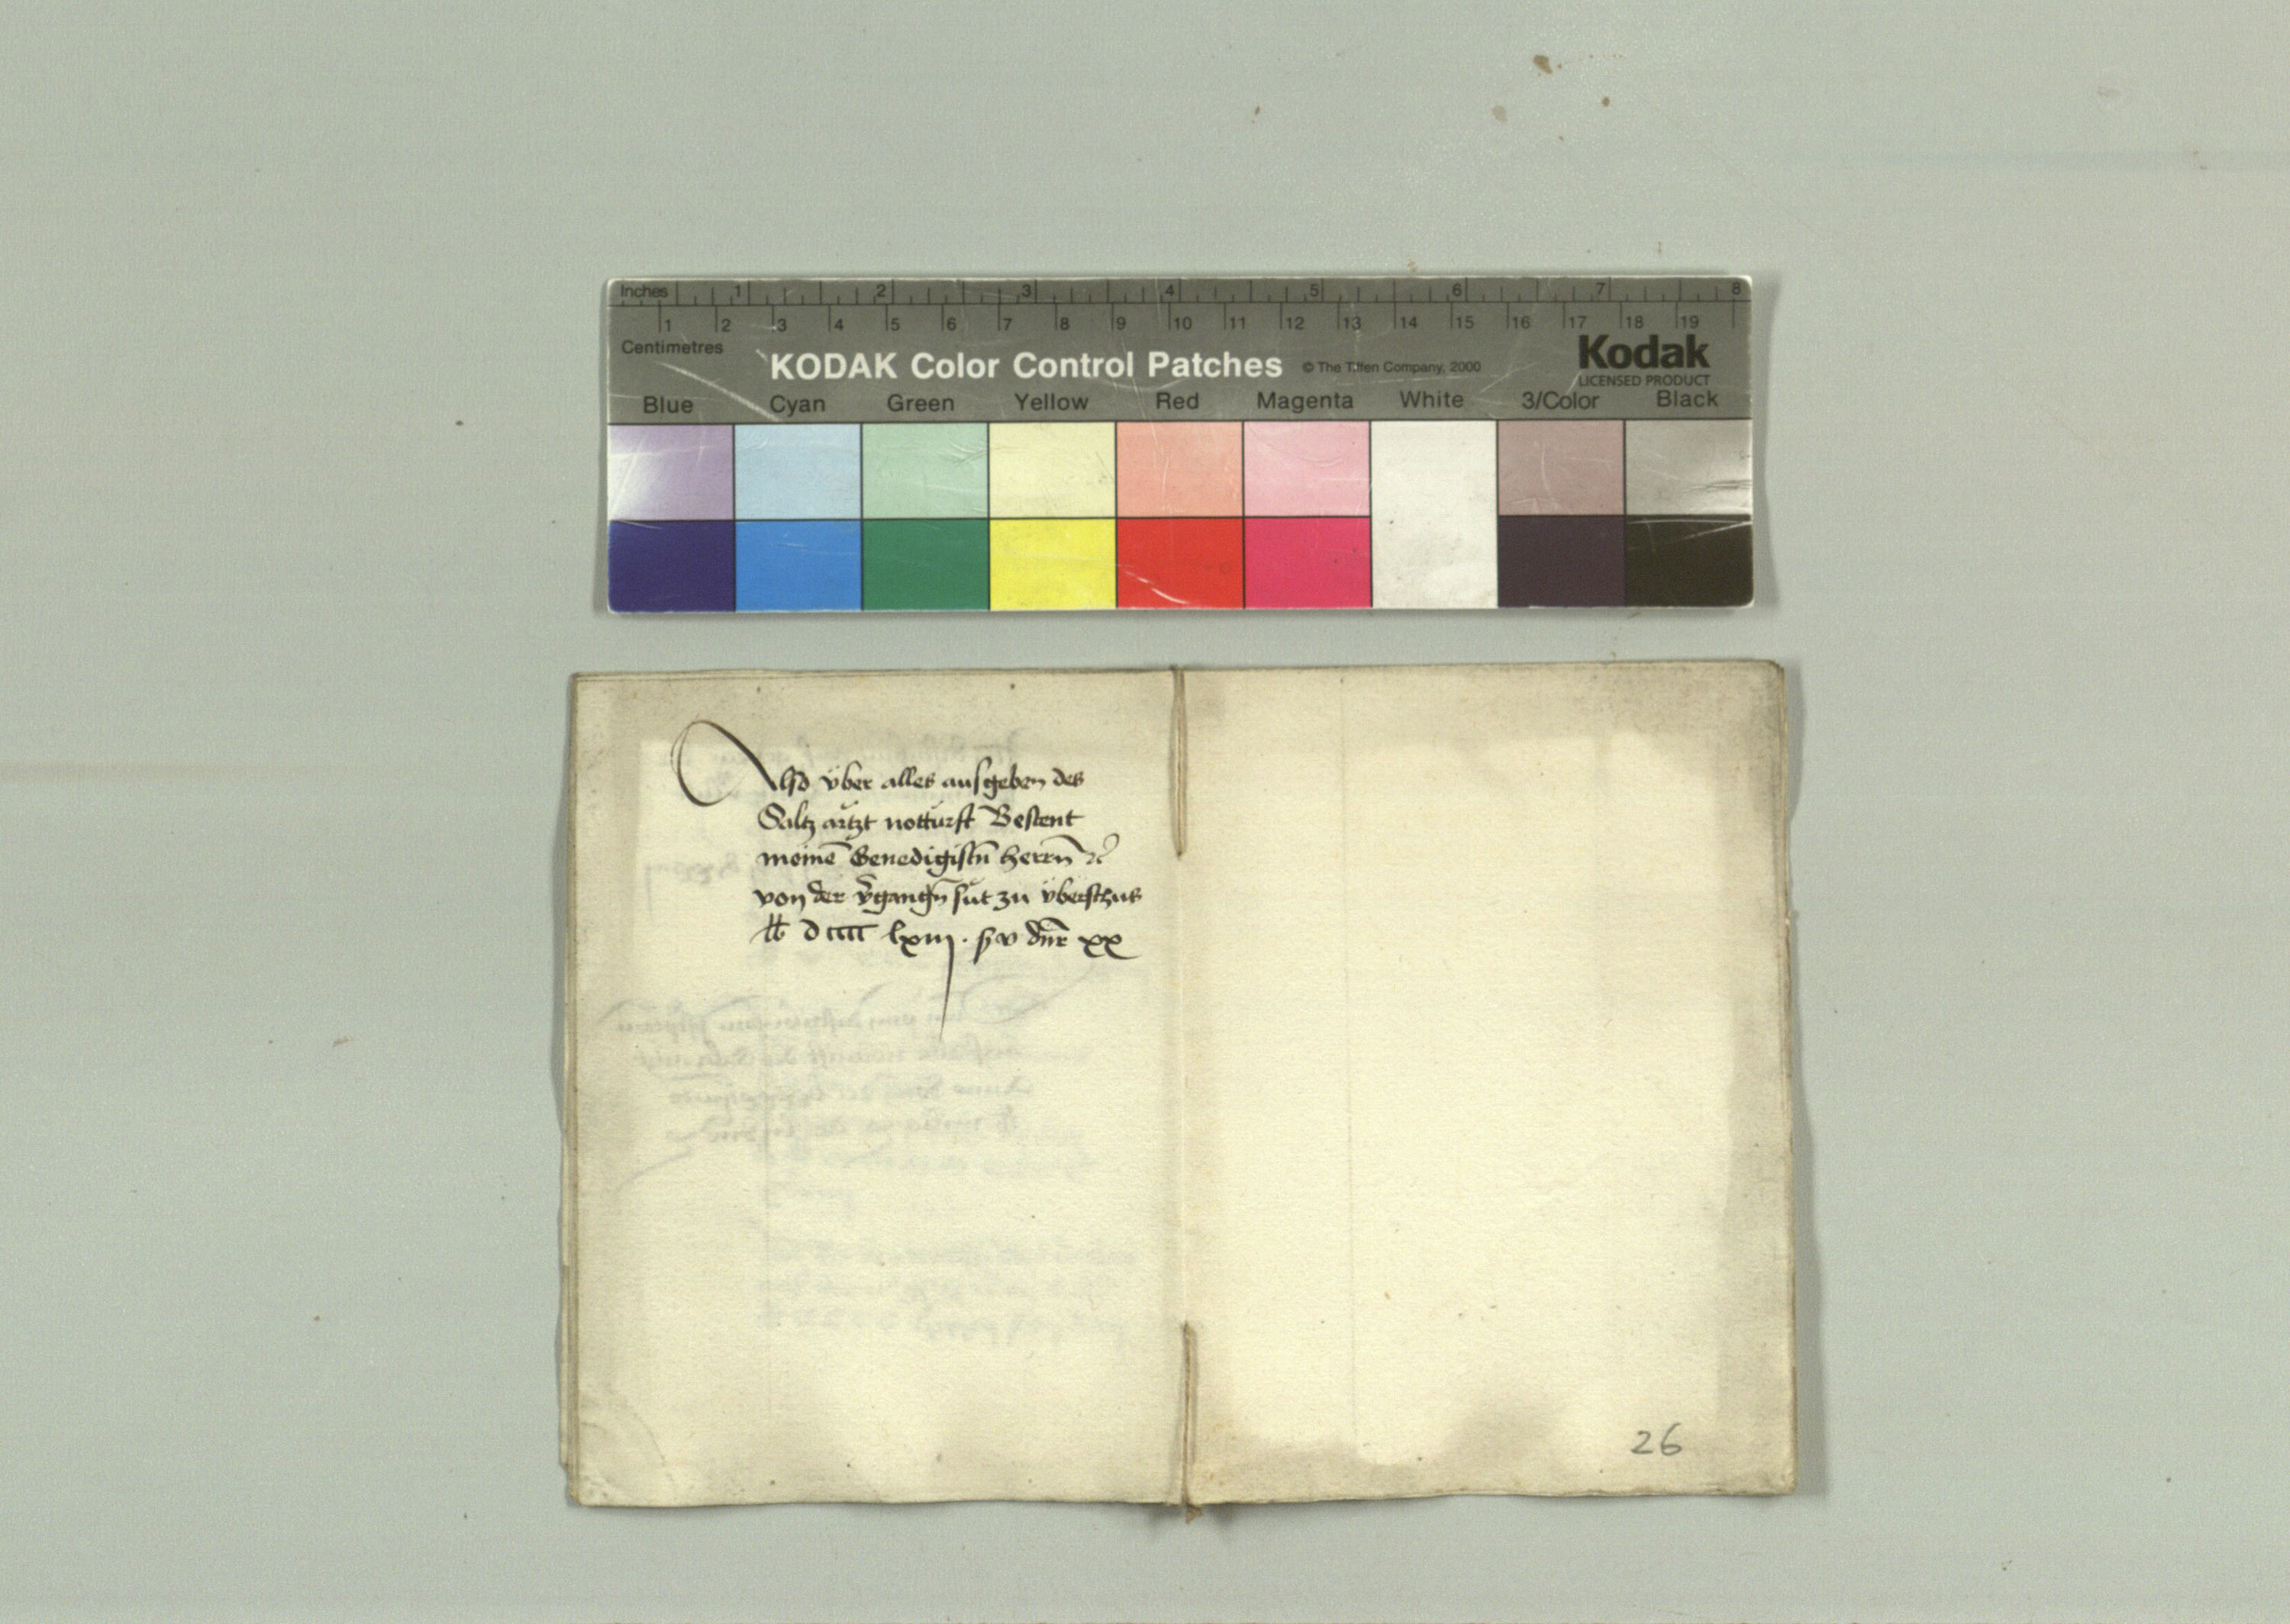 Inches 1 2 3 4 5 6 7 8
1 2 3 4 5 6 7 8 9 10 11 12 13 14 15 16 17 18 19
Centimetres
KODAK Color Control Patches © The Tiffen Company, 2000 Kodak
LICENSED PRODUCT
Blue Cyan Green Yellow Red Magenta White 3/Color Black
Also vber alles ausgeben des
Saltz artzt notturft Bestent
meinē Genedigistn̄ herrn̄ ꝛc
von der v̄gangn̄ sut zu vberschus
lb dcccc lxiij . ß v dn̄r xx
26